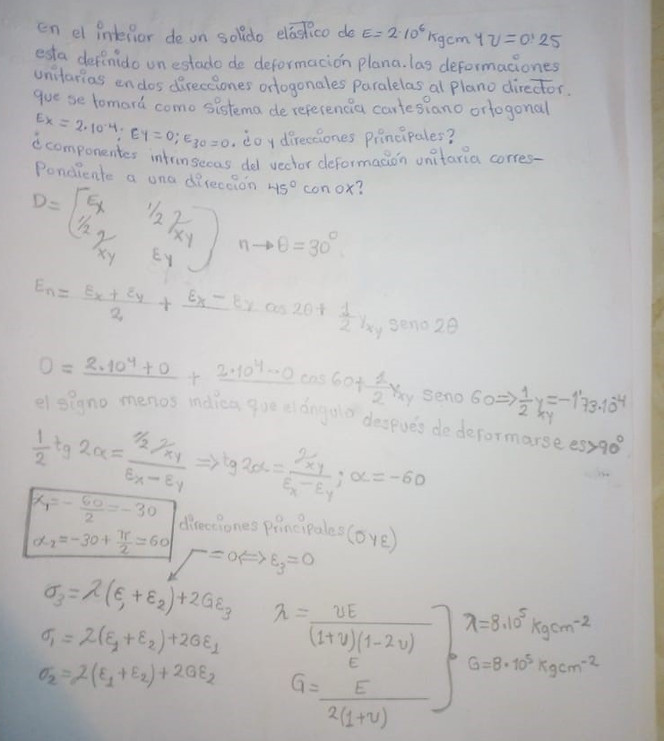 en el interior de un solido elástico de E=2·10⁶ Kgcm y ν=0'25
esta definido un estado de deformación plana. las deformaciones
unitarias en dos direcciones ortogonales paralelas al plano director.
que se tomará como sistema de referencia cartesiano ortogonal
Ex = 2·10⁻⁴; Ey=0; ε30=0. ¿σ y direcciones principales?
¿componentes intrinsecas del vector deformación unitaria corres-
Pondiente a una dirección 45° con ox?
D= [Ex 1/2 γxy
1/2 γxy εy] n→θ=30°.
En= (εx+εy)/2 + εx-εy cos 2θ + 1/2 γxy seno 2θ
0 = 2·10⁴+0 + 2·10⁴--0 cos 60+ 1/2 γxy seno 60 ⇒ 1/2 γxy=-1'73·10⁻⁴
el signo menos indica que el ángulo después de deformarse es>90°
1/2 tg 2α= (1/2 γxy)/(εx-εy) ⇒ tg 2α= γxy/(εx-εy) ; α=-60
α₁=- 60/2 =-30
α₂=-30+ π/2 =60
direcciones principales (σ y ε)
=0⇔ε₃=0
σ₃=λ(ε₁+ε₂)+2Gε₃
σ₁=λ(ε₁+ε₂)+2Gε₁
σ₂=λ(ε₁+ε₂)+2Gε₂
λ= νE/((1+ν)(1-2ν))
E
G= E/(2(1+ν))
λ=8·10⁵ Kgcm⁻²
G=8·10⁵ Kgcm⁻²